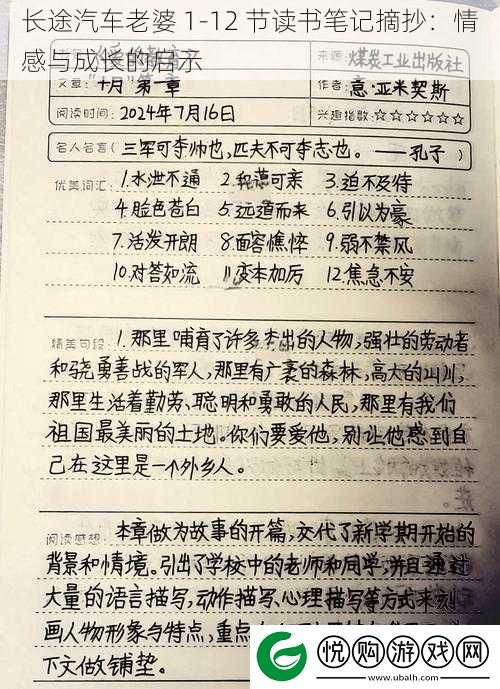 长途汽车老婆 1-12 节读书笔记摘抄：情
感与成长的启示
来源: 煤炭工业出版社
文章: "十月"第一章
作者: 意·亚米契斯
阅读时间: 2024年7月16日
兴趣指数: ☆☆☆☆☆☆
名人名言 (三军可夺帅也，匹夫不可夺志也。——孔子)
优美词汇: 1.水泄不通 2.和蔼可亲 3.迫不及待
4.脸色苍白 5.远道而来 6.引以为豪
7.活泼开朗 8.面容憔悴 9.弱不禁风
10.对答如流 11.变本加厉 12.焦急不安
精美句段: 1.那里哺育了许多杰出的人物，强壮的劳动者
和骁勇善战的军人，那里有广袤的森林，高大的山川，
那里生活着勤劳、聪明和勇敢的人民，那里有我们
祖国最美丽的土地。你们要爱他，别让他感到自
己在这里是一个外乡人。
阅读感想: 本章做为故事的开篇，交代了新学期开始的
背景和情境。引出了学校中的老师和同学，并且通过
大量的语言描写，动作描写、心理描写等方式来刻
画人物形象与特点，重点
下文做铺垫。
悦购游戏网
www.ubalh.com